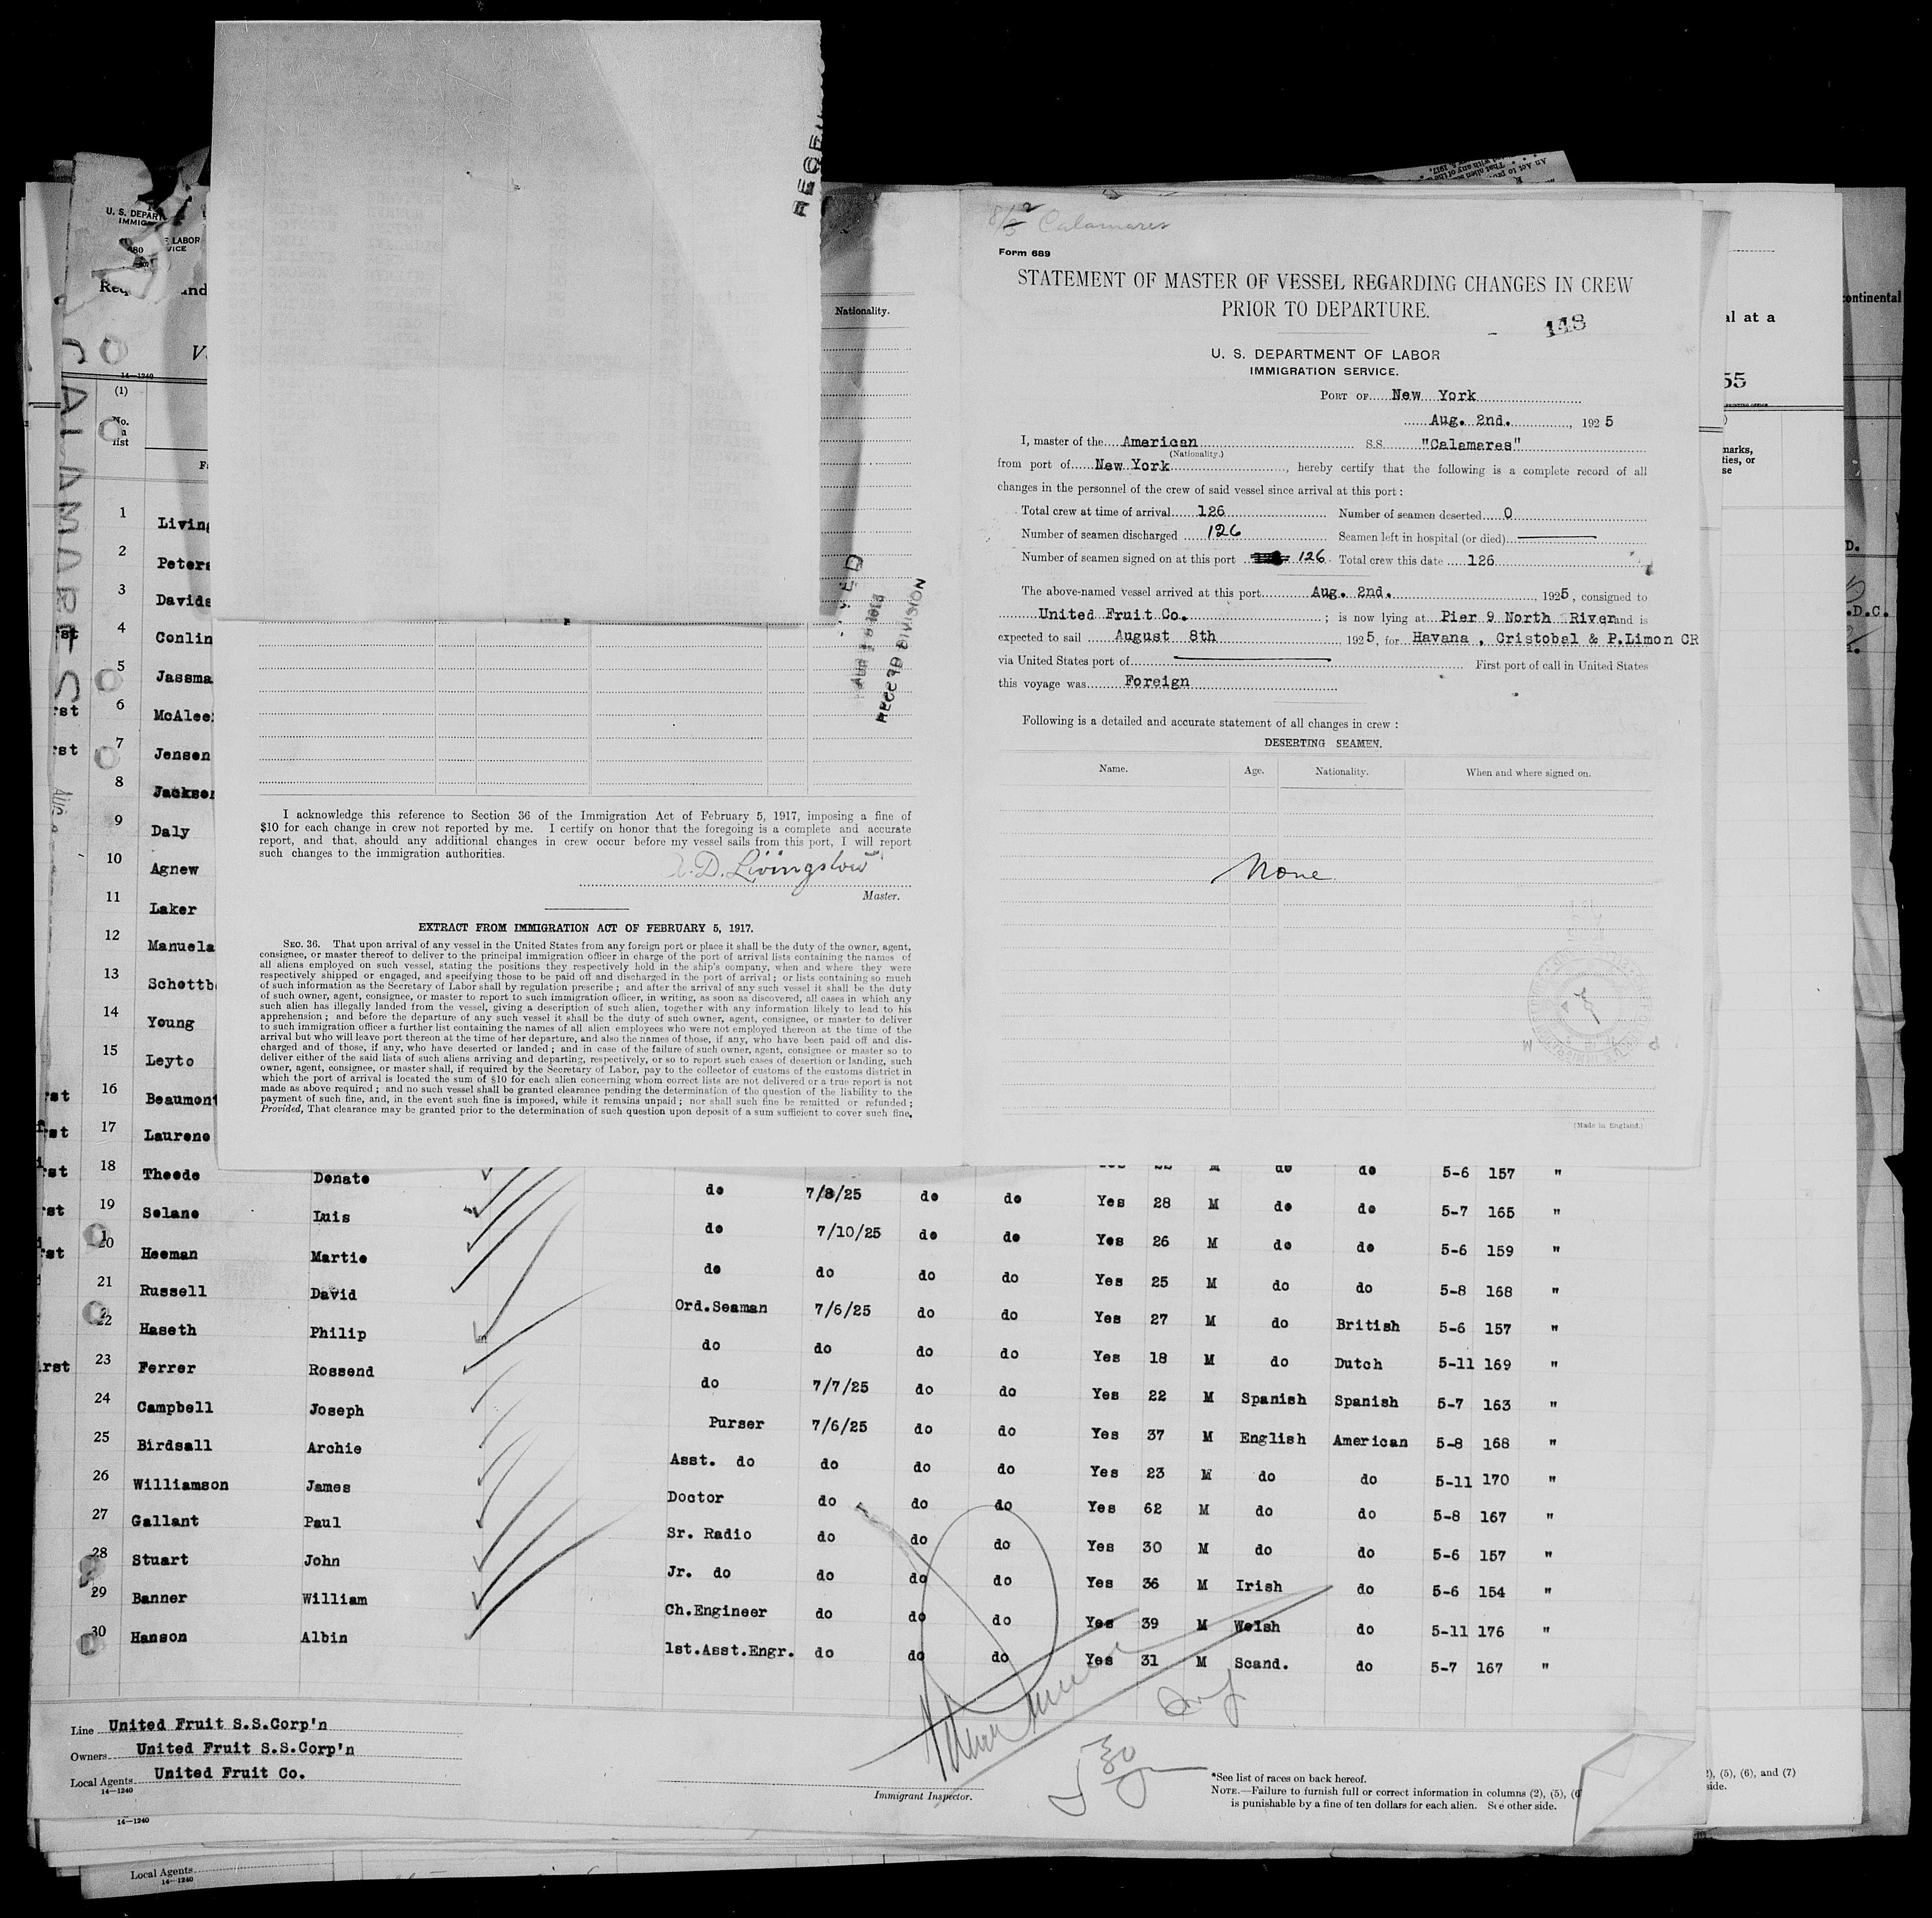 8/2 Calamares
Form 689
STATEMENT OF MASTER OF VESSEL REGARDING CHANGES IN CREW
PRIOR TO DEPARTURE.
148
U. S. DEPARTMENT OF LABOR
IMMIGRATION SERVICE.
PORT OF New York
Aug. 2nd., 1925
I, master of the American S.S. "Calamares"
(Nationality.)
from port of New York, hereby certify that the following is a complete record of all
changes in the personnel of the crew of said vessel since arrival at this port:
Total crew at time of arrival 126 Number of seamen deserted 0
Number of seamen discharged 126 Seamen left in hospital (or died)
Number of seamen signed on at this port 126 Total crew this date 126
The above-named vessel arrived at this port Aug. 2nd., 1925, consigned to
United Fruit Co.; is now lying at Pier 9 North River and is
expected to sail August 8th 1925, for Havana, Cristobal & P.Limon CR
via United States port of First port of call in United States
this voyage was Foreign
Following is a detailed and accurate statement of all changes in crew:
DESERTING SEAMEN.
Name. Age. Nationality. When and where signed on.
None
(Made in England.)
Nationality.
RECORD DIVISION
I acknowledge this reference to Section 36 of the Immigration Act of February 5, 1917, imposing a fine of
$10 for each change in crew not reported by me. I certify on honor that the foregoing is a complete and accurate
report, and that, should any additional changes in crew occur before my vessel sails from this port, I will report
such changes to the immigration authorities.
D. Livingston
Master.
EXTRACT FROM IMMIGRATION ACT OF FEBRUARY 5, 1917.
SEC. 36. That upon arrival of any vessel in the United States from any foreign port or place it shall be the duty of the owner, agent,
consignee, or master thereof to deliver to the principal immigration officer in charge of the port of arrival lists containing the names of
all aliens employed on such vessel, stating the positions they respectively hold in the ship's company, when and where they were
respectively shipped or engaged, and specifying those to be paid off and discharged in the port of arrival; or lists containing so much
of such information as the Secretary of Labor shall by regulation prescribe; and after the arrival of any such vessel it shall be the duty
of such owner, agent, consignee, or master to report to such immigration officer, in writing, as soon as discovered, all cases in which any
such alien has illegally landed from the vessel, giving a description of such alien, together with any information likely to lead to his
apprehension; and before the departure of any such vessel it shall be the duty of such owner, agent, consignee, or master to deliver
to such immigration officer a further list containing the names of all alien employees who were not employed thereon at the time of the
arrival but who will leave port thereon at the time of her departure, and also the names of those, if any, who have been paid off and dis-
charged and of those, if any, who have deserted or landed; and in case of the failure of such owner, agent, consignee or master so to
deliver either of the said lists of such aliens arriving and departing, respectively, or so to report such cases of desertion or landing, such
owner, agent, consignee, or master shall, if required by the Secretary of Labor, pay to the collector of customs of the customs district in
which the port of arrival is located the sum of $10 for each alien concerning whom correct lists are not delivered or a true report is not
made as above required; and no such vessel shall be granted clearance pending the determination of the question of the liability to the
payment of such fine, and, in the event such fine is imposed, while it remains unpaid; nor shall such fine be remitted or refunded;
Provided, That clearance may be granted prior to the determination of such question upon deposit of a sum sufficient to cover such fine.
CALAMARES
14—1240
(1)
No.
list
1 Living
2 Peters
3 Davids
4 Conlin
5 Jassma
6 McAlee
7 Jensen
8 Jackson
9 Daly
10 Agnew
11 Laker
12 Manuela
13 Schottb
14 Young
15 Leyto
16 Beaumont
17 Laurene
18 Theede Donate 5-6 157 "
19 Solano Luis do 7/8/25 do do Yes 28 M do do 5-7 165 "
20 Heeman Martie do 7/10/25 do do Yes 26 M do do 5-6 159 "
21 Russell David do do do do Yes 25 M do do 5-8 168 "
22 Haseth Philip Ord.Seaman 7/6/25 do do Yes 27 M do British 5-6 157 "
23 Ferrer Rossend do do do do Yes 18 M do Dutch 5-11 169 "
24 Campbell Joseph do 7/7/25 do do Yes 22 M Spanish Spanish 5-7 163 "
25 Birdsall Archie Purser 7/6/25 do do Yes 37 M English American 5-8 168 "
26 Williamson James Asst. do do do do Yes 23 M do do 5-11 170 "
27 Gallant Paul Doctor do do do Yes 62 M do do 5-8 167 "
28 Stuart John Sr. Radio do do do Yes 30 M do do 5-6 157 "
29 Banner William Jr. do do do do Yes 36 M Irish do 5-6 154 "
30 Hanson Albin Ch.Engineer do do do Yes 39 M Welsh do 5-11 176 "
1st.Asst.Engr. do do do Yes 31 M Scand. do 5-7 167 "
Line United Fruit S.S.Corp'n
Owners United Fruit S.S.Corp'n
Local Agents United Fruit Co.
14—1240
Immigrant Inspector.
*See list of races on back hereof.
NOTE.—Failure to furnish full or correct information in columns (2), (5), (6
is punishable by a fine of ten dollars for each alien. See other side.
14—1240
Local Agents
14—1240
continental
al at a
55
marks,
ties, or
se
D.C.
), (5), (6), and (7)
side.